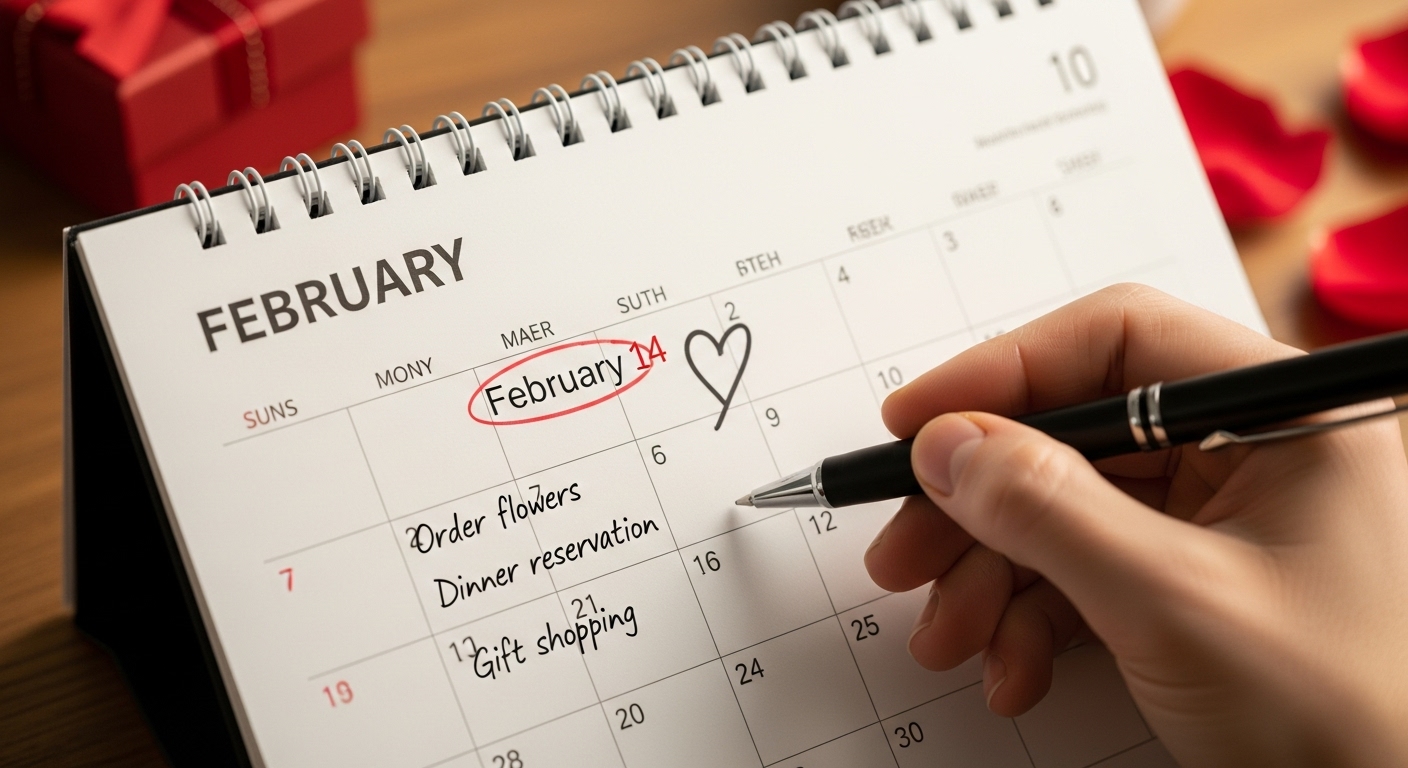 10
FEBRUARY
SUNS MONY MAER SUTH BTEH
February 14
2 4 3
6 9 10
7 Order flowers 7
Dinner reservation
16 12
19 Gift shopping 21
24 25
28 20 30